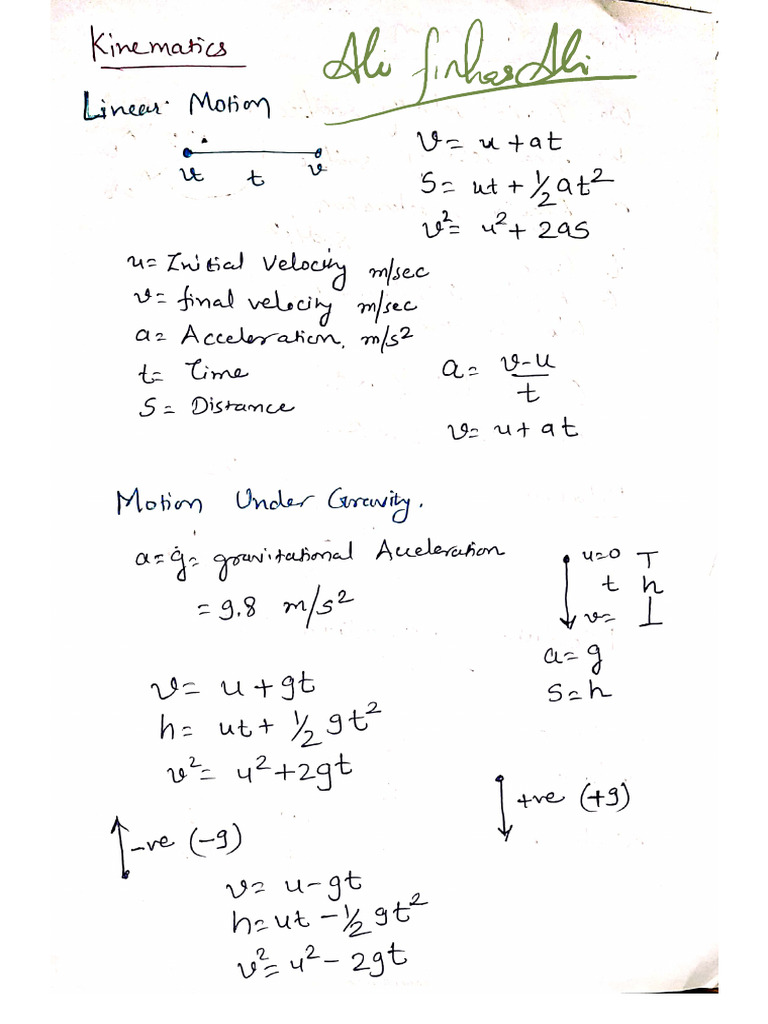 Kinematics
Linear Motion
u t v
v = u + at
S = ut + 1/2 at²
v² = u² + 2as
u = Initial Velocity m/sec
v = final velocity m/sec
a = Acceleration, m/s²
t = Time
S = Distance
a = v-u / t
v = u + at
Motion Under Gravity.
a = g = gravitational Acceleration
= 9.8 m/s²
u=0
t h
v=
a = g
S = h
v = u + gt
h = ut + 1/2 gt²
v² = u² + 2gt
+ve (+g)
-ve (-g)
v = u - gt
h = ut - 1/2 gt²
v² = u² - 2gt